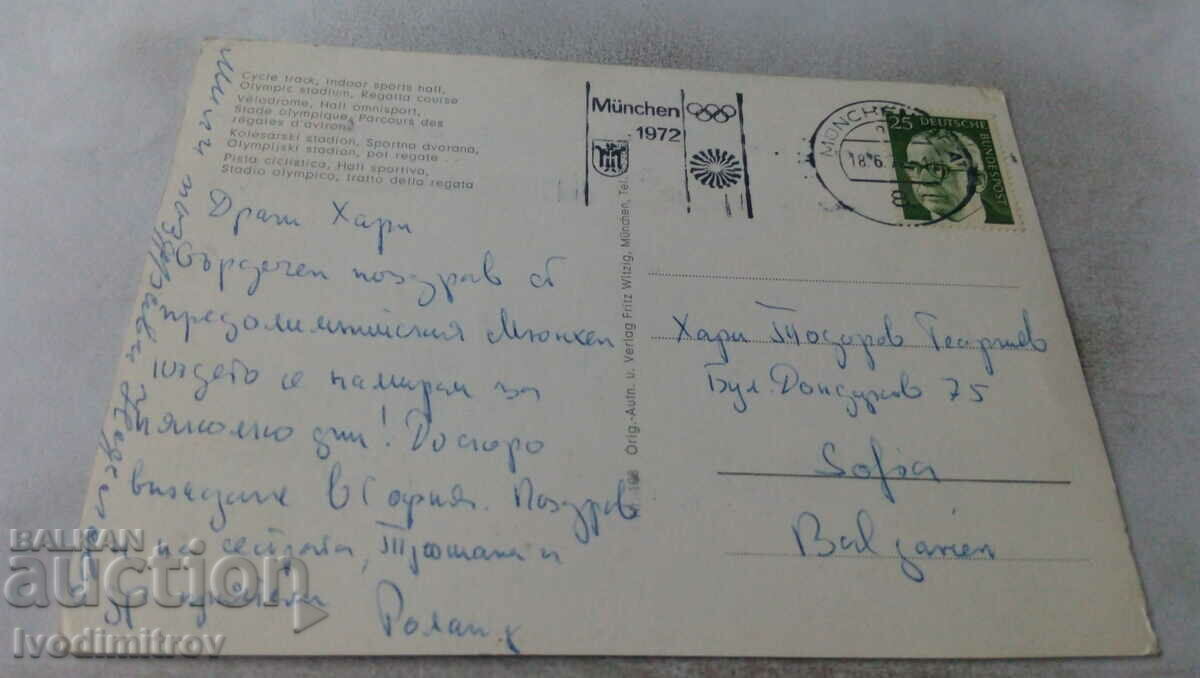 Cycle track, Indoor sports hall,
Olympic stadium, Regatta course
Vélodrome, Hall omnisport,
Stade olympique, Parcours des
régates d'aviron
Kolesarski stadion, Sportna dvorana,
Olympijski stadion, pot regate ..
Pista ciclistica, Hall sportiva,
Stadio olympico, tratto della regata
München
1972
MÜNCHEN
18.6.7
8
25 DEUTSCHE
BUNDESPOST
Драги Хари
Сърдечен поздрав от
предолимпийския Мюнхен
където се намирам за
няколко дни! До скоро
виждане в София. Поздрав
на сестрата,
и приятели Роланд
поздрави
Orig.-Aufn. u. Verlag Fritz Witzig, München, Tel.
Хари Тодоров Георгиев
Бул. Дондуков 75
Sofia
Bulgarien
BALKAN
auction
Ivodimitrov